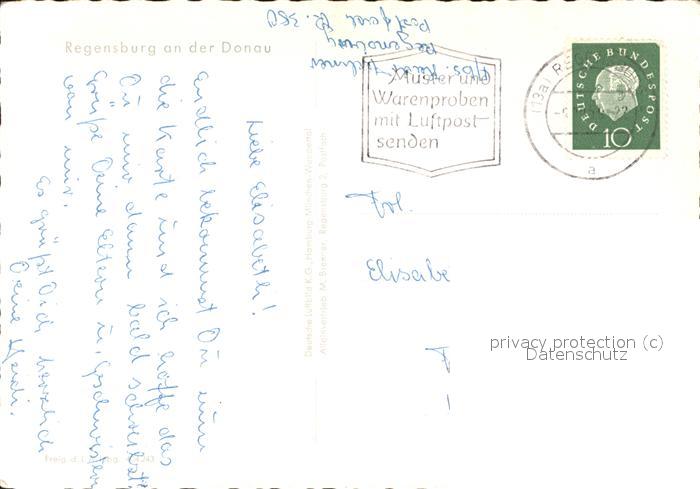 Regensburg an der Donau
Liebe Elisabeth!
Endlich bekommst Du nun
die Karte und ich hoffe das
Du mir dann bald schreibst
Grüße Deine Eltern u. Geschwister
von mir.
Es grüßt Dich herzlich
Deine
Deutsche Luftbild K.G., Hamburg-München-Wuppertal
Alleinvertrieb M. Regensburg 2, Postfach
Freig. d. L.
Abs.
Regensburg
Postfach
Muster und
Warenproben
mit Luftpost
senden
(13a) RE
a
DEUTSCHE BUNDESPOST
10
Frl.
Elisabe
privacy protection (c)
Datenschutz